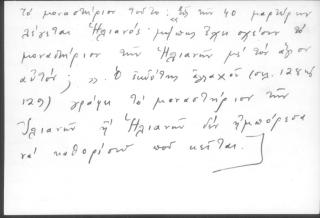 τὸ μοναστήριον τοῦτο· "τῶν 40 μαρτύρων
λέγεται Ἡλιανός· μήπως ἔχει σχέσιν τὸ
μοναστήριον τῶν Ἡλιανῶν μὲ τὸν ἅγιον
αὐτόν; ». Ὁ ἐκδότης ἀλλαχοῦ (σελ. 128
129) γράφει τὸ μοναστήριον τῶν
Ἰλιανῶν ἢ Ἡλιανῶν δὲν ἠμπόρεσα
νὰ καθορίσω ποῦ κεῖται.